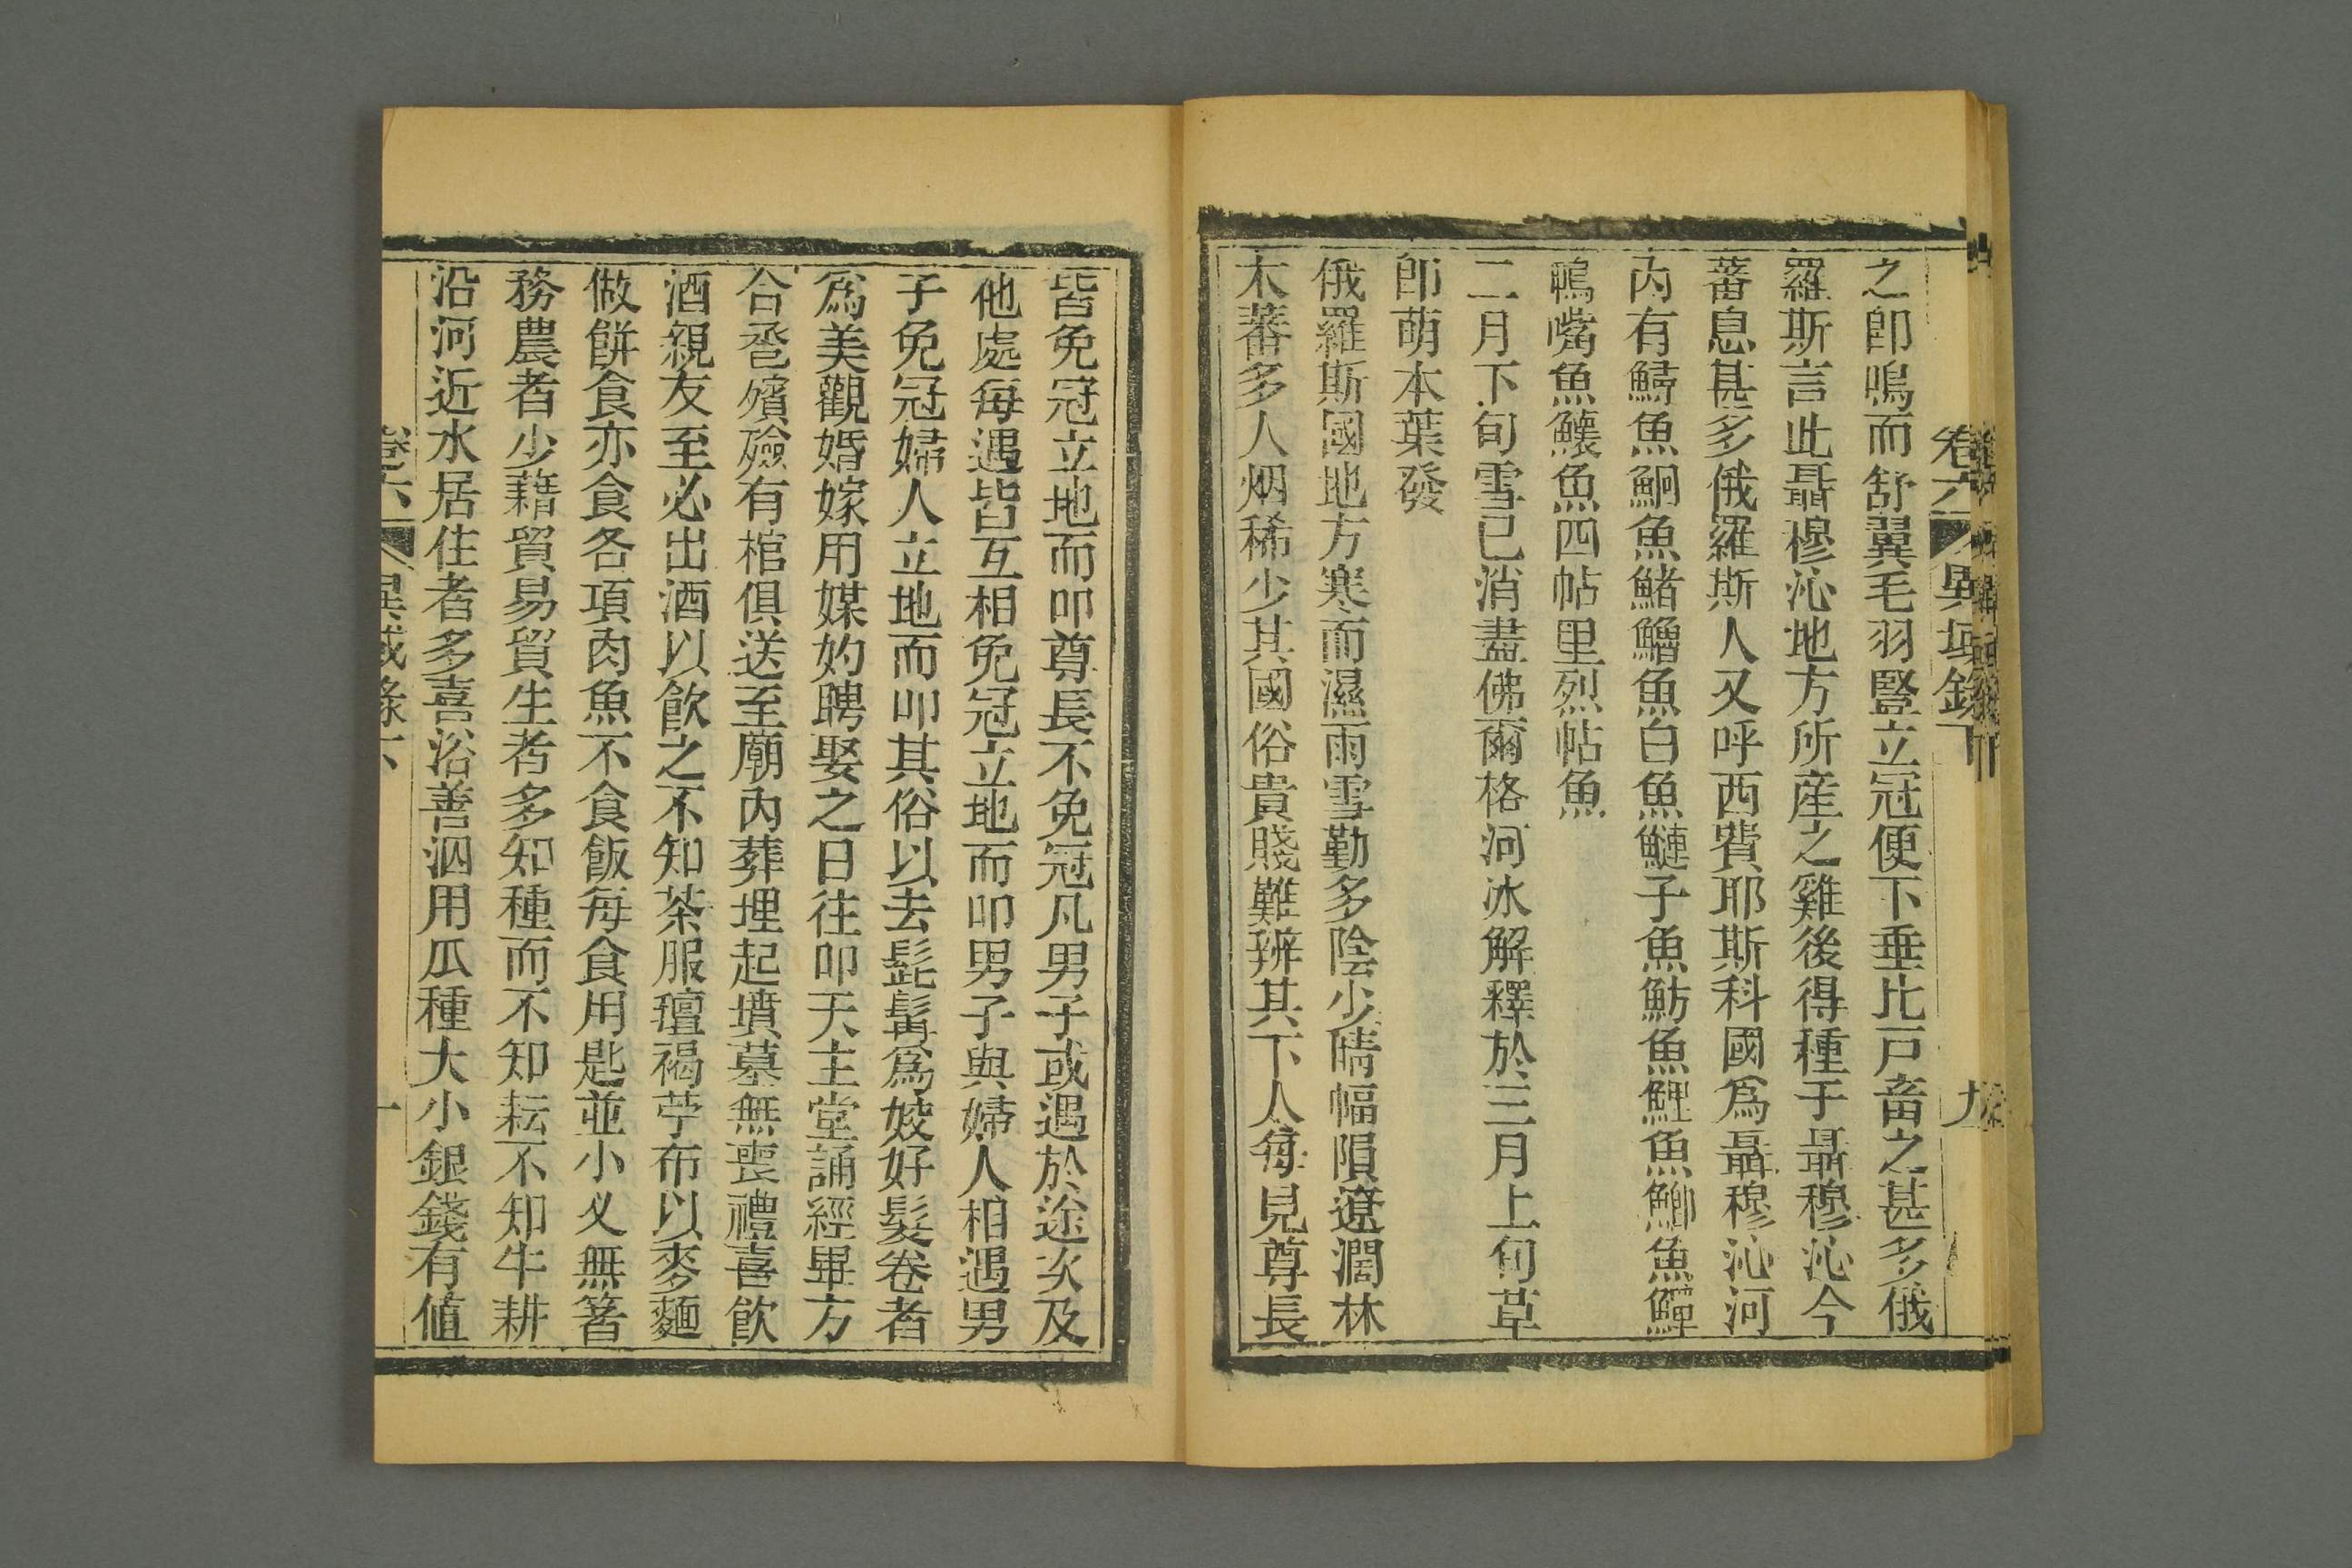 卷六 異域錄下 九
之卽鳴而舒翼毛羽豎立冠便下垂比戸畜之甚多俄
羅斯言此聶穆沁地方所産之雞後得種于聶穆沁今
蕃息甚多俄羅斯人又呼西費耶斯科國爲聶穆沁河
內有鱘魚魚鮰魚鰭鱨魚白魚鰱子魚魴魚鯉魚鯽魚鱓
鴫嘴魚鱤魚四帖里烈帖魚
二月下旬雪已消盡佛爾格河冰解釋於三月上旬草
卽萌本葉發
俄羅斯國地方寒而濕雨雪勤多陰少晴幅隕遼濶林
木蕃多人烟稀少其國俗貴賤難辨其下人每見尊長
皆免冠立地而叩尊長不免冠凡男子或遇於途次及
他處每遇皆互相免冠立地而叩男子與婦人相遇男
子免冠婦人立地而叩其俗以去髭髯爲姣好髮卷者
爲美觀婚嫁用媒妁聘娶之日往叩天主堂誦經畢方
合巹殯殮有棺俱送至廟內葬埋起墳墓無喪禮喜飮
酒親友至必出酒以飮之不知茶服氊褐苧布以麥麵
做餠食亦食各項肉魚不食飯每食用匙並小叉無箸
務農者少藉貿易貿生者多知種而不知耘不知牛耕
沿河近水居住者多喜浴善泅用瓜種大小銀錢有値
卷六 異域錄下 十